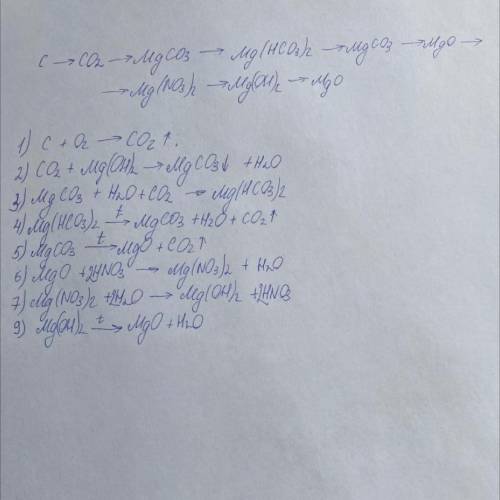 C → CO2 → MgCO3 → Mg(HCO3)2 → MgCO3 → MgO →
→ Mg(NO3)2 → Mg(OH)2 → MgO
1) C + O2 → CO2↑.
2) CO2 + Mg(OH)2 → MgCO3↓ + H2O
3) MgCO3 + H2O + CO2 → Mg(HCO3)2
4) Mg(HCO3)2 t→ MgCO3 + H2O + CO2↑
5) MgCO3 t→ MgO + CO2↑
6) MgO + 2HNO3 → Mg(NO3)2 + H2O
7) Mg(NO3)2 + 2H2O → Mg(OH)2 + 2HNO3
9) Mg(OH)2 t→ MgO + H2O